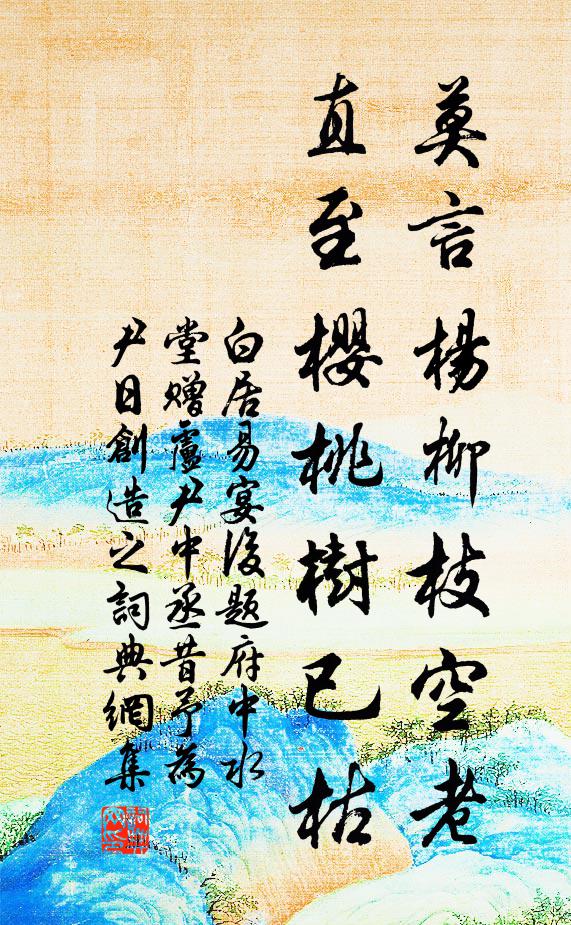 莫言楊柳枝空老
直至櫻桃樹已枯
白居易宴後題府中水
堂贈盧尹中丞昔予為
尹日創造之詞典網集